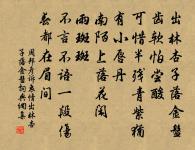 出林杏子落金盤
齒軟怕嘗酸
可惜半殘青紫猶
有小唇丹
南陌上落花閒
雨斑斑
不言不語一段傷
春都在眉間
周邦彥詩訴衷情出林杏
子落金盤詞典調集